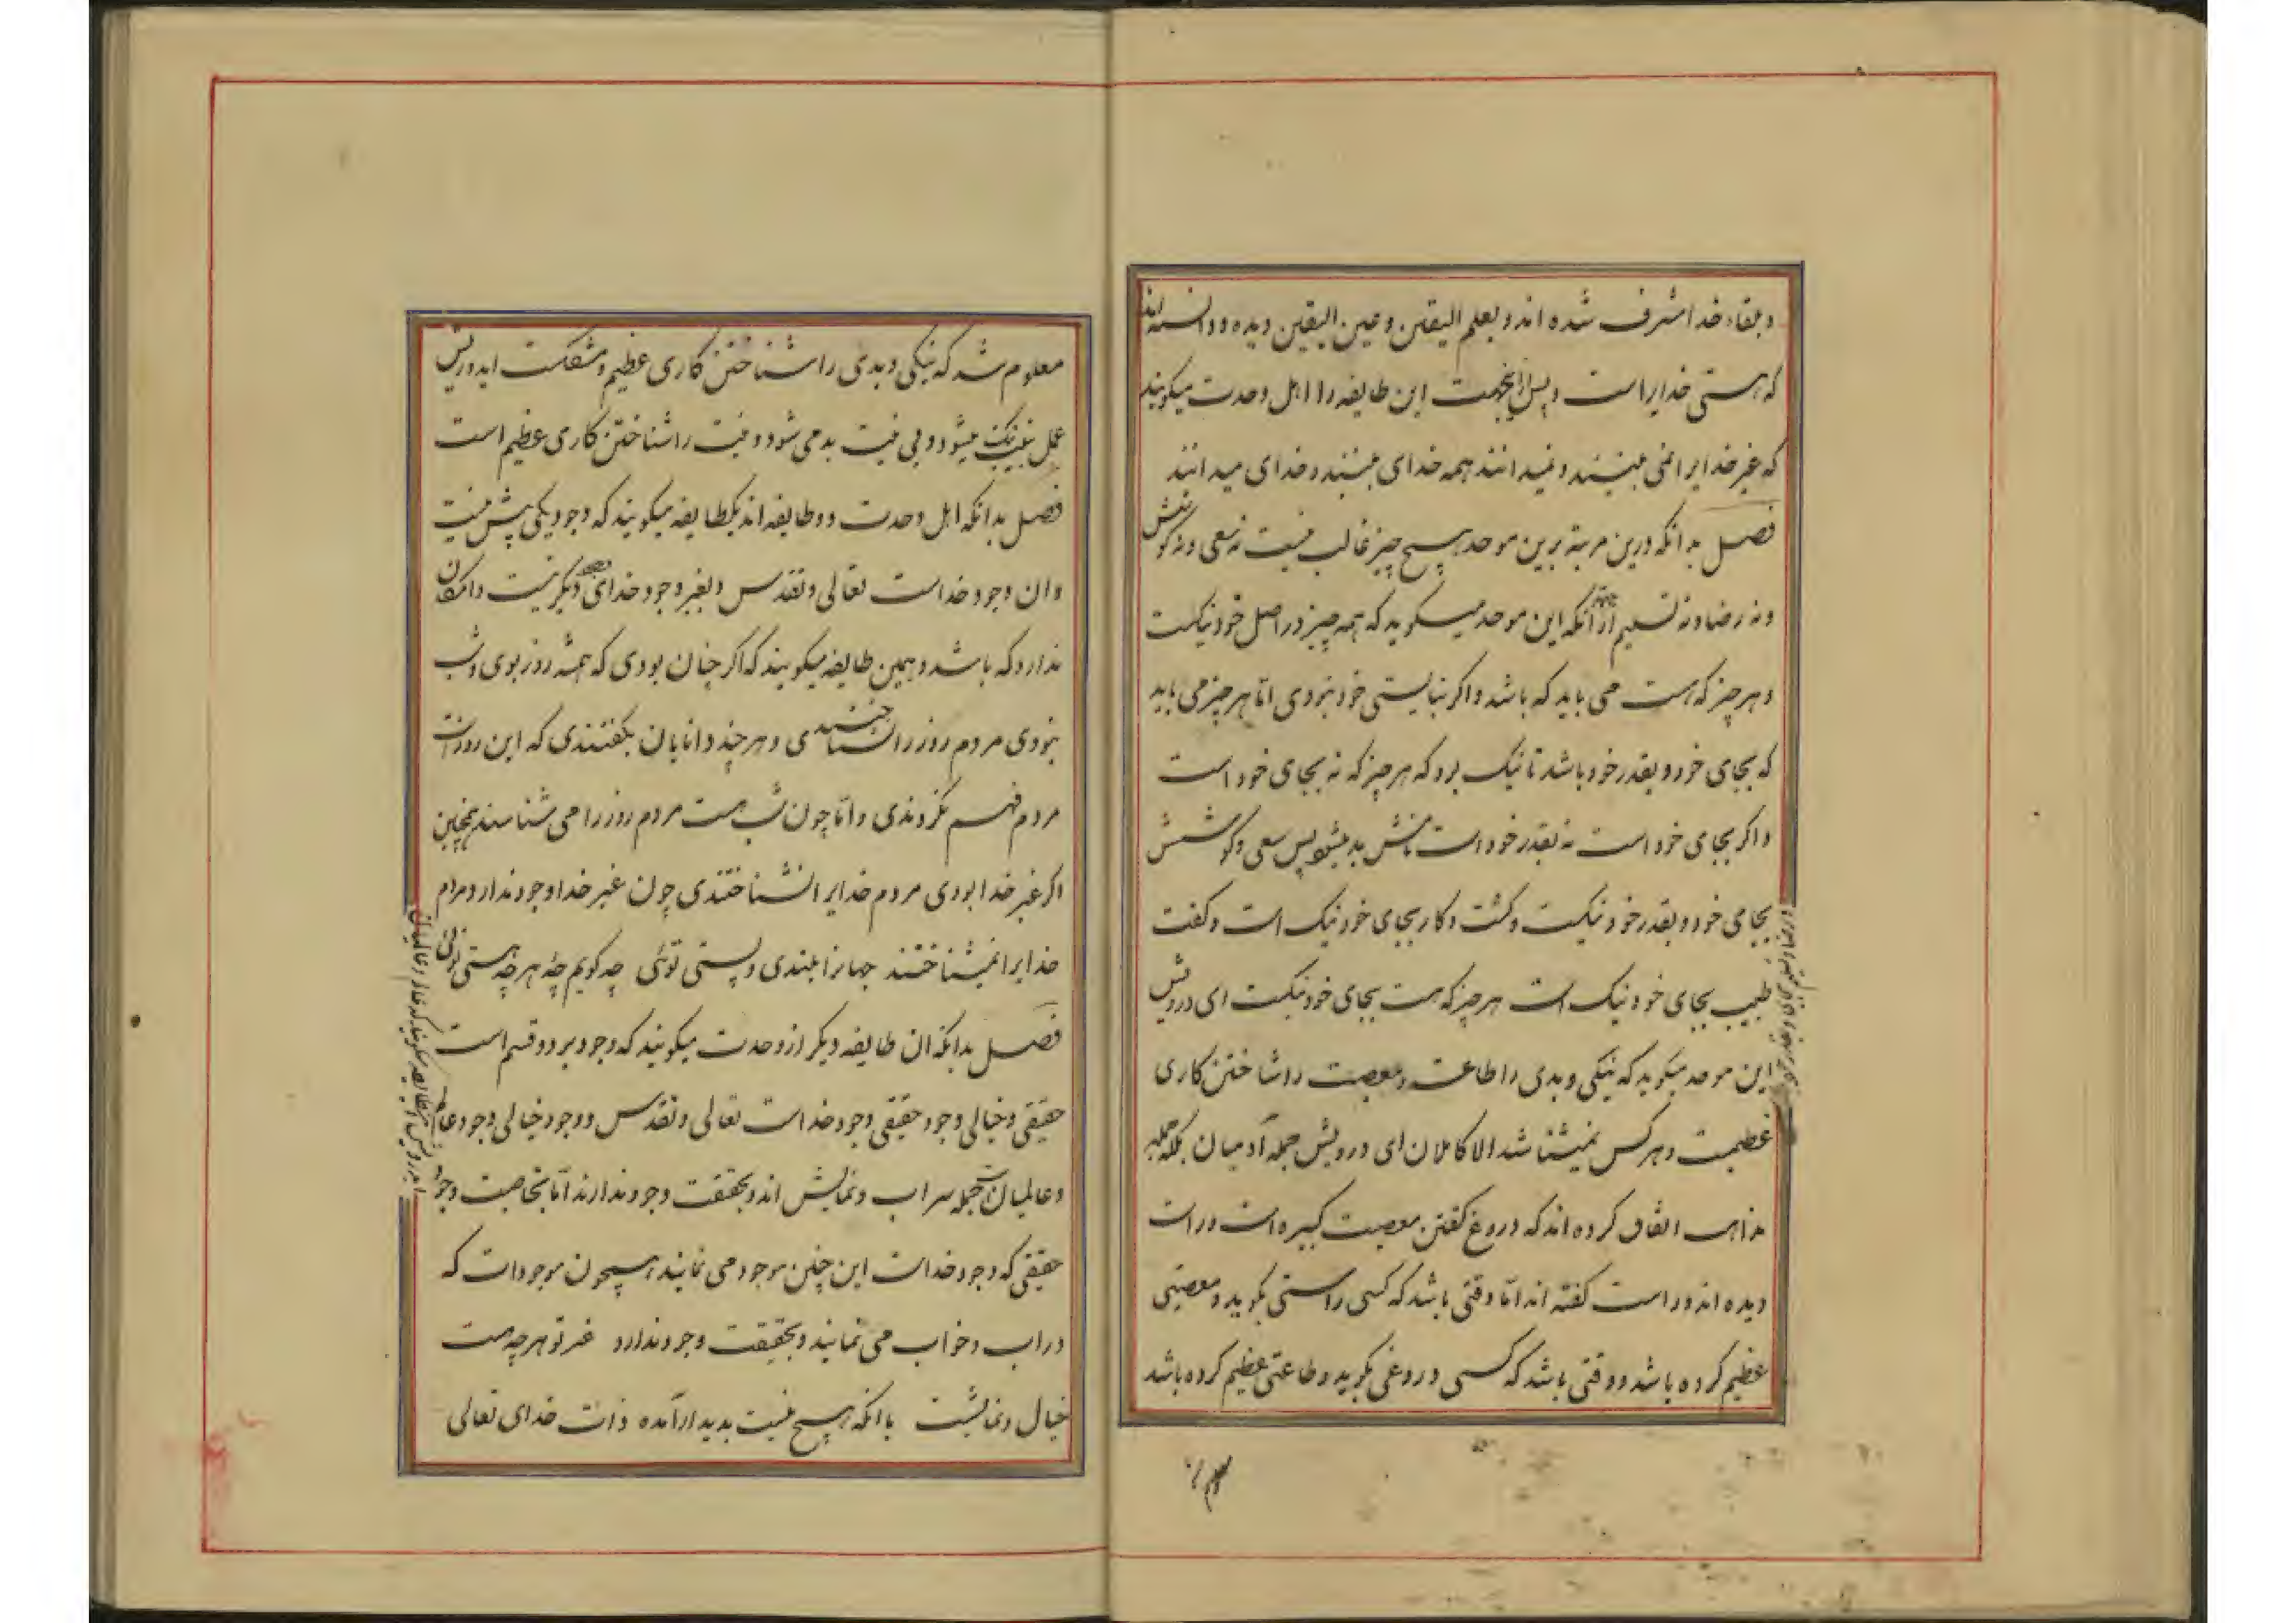 و بلقاء خدا مشرف شده اند و بعلم الیقین و عین الیقین دیده و دانسته اند
که هستی خدایراست و پس ازینجهت این طایفه را اهل وحدت میکویند
که غیر خدایرا نمی بینند و نمیدانند همه خدای بینند و خدای میدانند
فصل بدانکه درین مرتبه برین موحد هیچ چیز غالب نیست نه سعی و نه کوشش
و نه رضا و نه تسلیم از جهة انکه این موحد میکوید که همه چیز در اصل خود نیکست
و هر چیز که هست می باید که باشد و اکر نبایستی خود نبودی امّا هر چیز می باید
که بجای خود و بقدر خود باشد تا نیک بود که هر چیز که نه بجای خود است
و اکر بجای خود است نه بقدر خود است نامش بد میشود پس سعی و کوشش
بجای خود و بقدر خود نیکست و کشت و کار بجای خود نیک است و کفت
طبیب بجای خود نیک است هر چیز که هست بجای خود نیکست ای درویش
این موحد میکوید که نیکی و بدی را طاعت و معصیت را شناختن کاری
عظیمست و هر کس نمیشناسد الا کاملان ای درویش جمله آدمیان بلکه جمله
مذاهب اتفاق کرده اند که دروغ کفتن معصیت کبیره است و راست
دیده اند و راست کفته اند امّا وقتی باشد که کسی راستی بکوید و معصیتی
عظیم کرده باشد و وقتی باشد که کسی دروغی بکوید و طاعتی عظیم کرده باشد
و رضا و تسلیم بجای و بقدر خود
معلوم
معلوم شد که نیکی و بدی را شناختن کاری عظیم و مشکلست ایدرویش
عمل بنیت نیک میشود و بی نیت بد می شود و نیت را شناختن کاری عظیم است
فصل بدانکه اهل وحدت دو طایفه اند یکطایفه میکویند که وجود یکی بیش نیست
و ان وجود خداست تعالی و تقدس و بغیر وجود خدای وجود دیکر نیست و امکان
ندارد که باشد و همین طایفه میکویند که اکر چنان بودی که همیشه روز بودی و شب
نبودی مردم روز را نشناختندی و هر چند دانایان بکفتندی که این روز است
مردم فهم نکردندی و امّا چون شب هست مردم روز را می شناسند همچنین
اکر غیر خدا بودی مردم خدایرا نشناختندی چون غیر خدا وجود ندارد مردم
خدایرا نمیشناختند جهانرا بلندی و پستی توئی چه کویم چۀ هر چه هستی توئی
فصل بدانکه ان طایفه دیکر از وحدت میکویند که وجود بر دو قسم است
حقیقی و خیالی وجود حقیقی وجود خداست تعالی و تقدس و وجود خیالی وجود عالم
و عالمیان است جمله سراب و نمایش اند و بحقیقت وجود ندارند امّا بخاصیت وجود
حقیقی که وجود خداست این چنین موجود می نمایند همچون موجودات که
در اب و خواب می نمایند و بحقیقت وجود ندارد غیر تو هر چه هست
خیال و نمایشست با انکه هیچ نیست بدیدار آمده ذات خدای تعالی
ایدرویش این طایفه میکویند که عالم و عالمیان